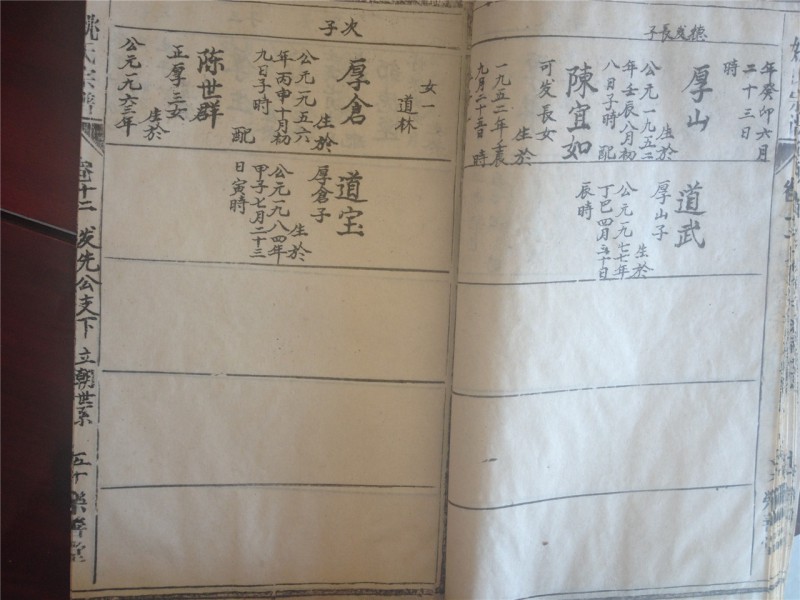 德發長子
年癸卯六月
二十三日
時
厚山
生於
公元一九五二
年壬辰八月初
八日子時 配
陳宜如
可发長女
生於
一九五二年壬辰
九月二十三日 時
道武
厚山子
生於
公元一九七七年
丁巳四月三十日
辰時
次子
女一
道林
厚倉
生於
公元一九五六
年丙申十月初
九日子時 配
陈世群
正厚三女
生於
公元一九六三年
道宝
厚倉子
生於
公元一九八四年
甲子七月二十三
日寅時
姚氏宗譜
卷十二 发先公支下 立朝世系 五十